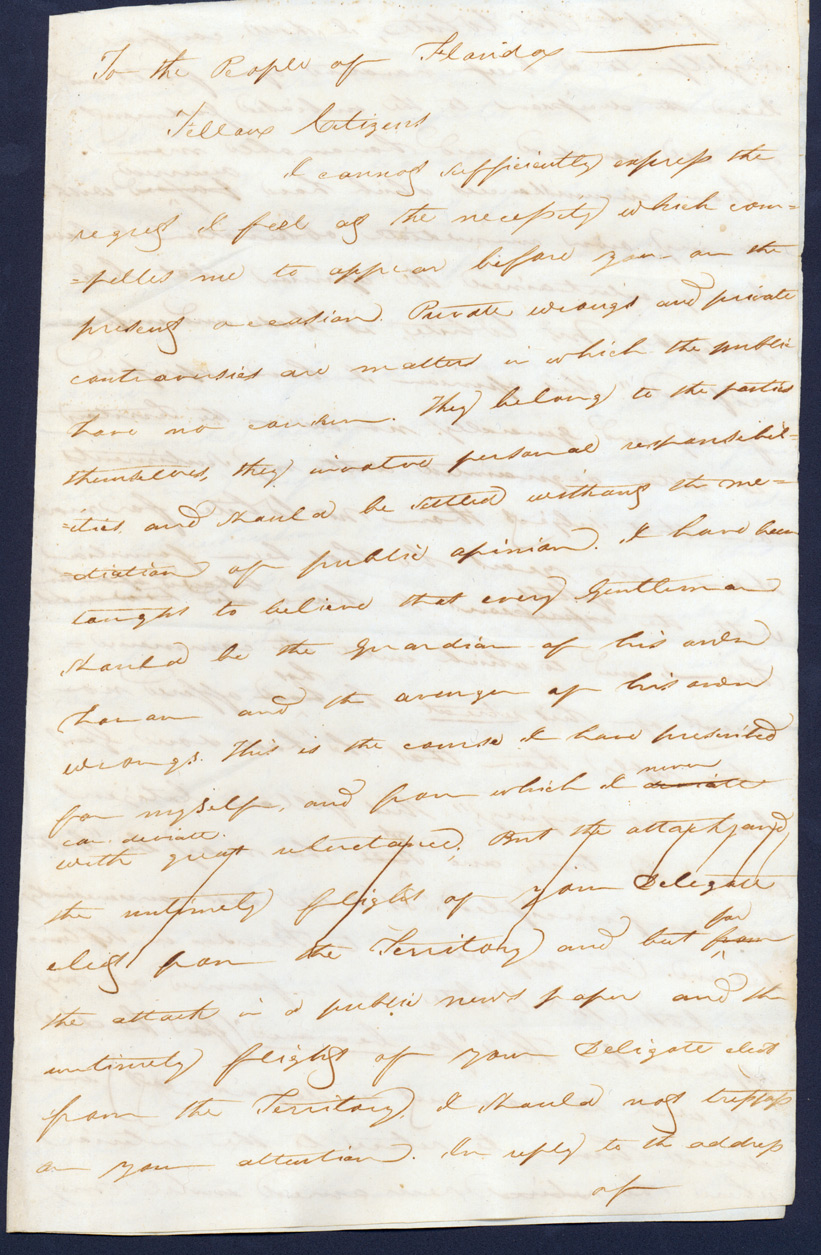 To the People of Florida
Fellow Citizens
I cannot sufficiently express the
regret I feel at the necessity which com=
=pelles me to appear before you on the
present occasion. Private wrongs and private
controversies are matters in which the public
have no concern. They belong to the parties
themselves, they involve personal responsibil=
=ities and should be settled without the me=
=diation of public opinion. I have been
taught to believe that every Gentleman
should be the guardian of his own
honor and the avenger of his own
wrongs. This is the course I have prescribed
for myself, and from which I never deviate
can deviate.
with great reluctance, But the attack, and
the untimely flight of your Delegate
elect from the Territory and but for from
the attack in a public news paper and the
untimely flight of your Deligate elect
from the Territory I should not trespass
on your attention. In reply to the address
of